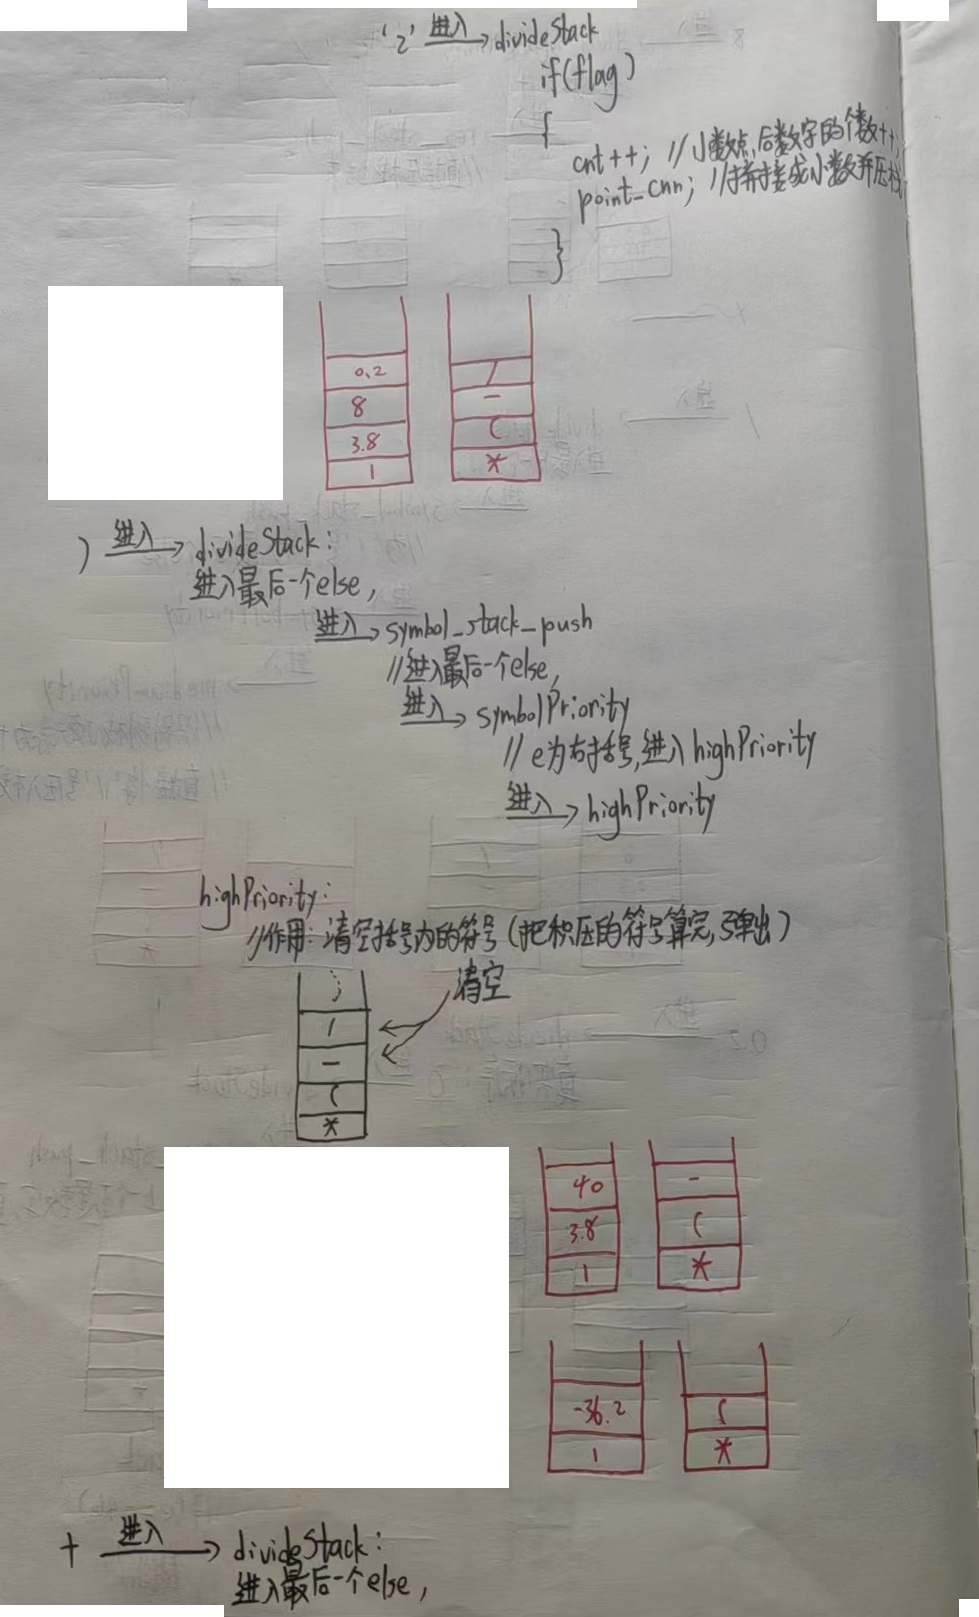 '2' 进入→ divideStack
if(flag)
{
cnt++; //小数点后数字的个数++;
point_cnn; //拼接成小数并压栈
}
0.2
8
3.8
1
/
-
(
*
) 进入→ divideStack:
进入最后一个else,
进入→ symbol_stack_push
//进入最后一个else,
进入→ symbolPriority
// e为右括号,进入highPriority
进入→ highPriority
highPriority:
//作用: 清空括号内的符号(把积压的符号算完,弹出)
清空
)
/
-
(
*
40
3.8
1
-
(
*
-36.2
1
(
*
+ 进入→ divideStack:
进入最后一个else,